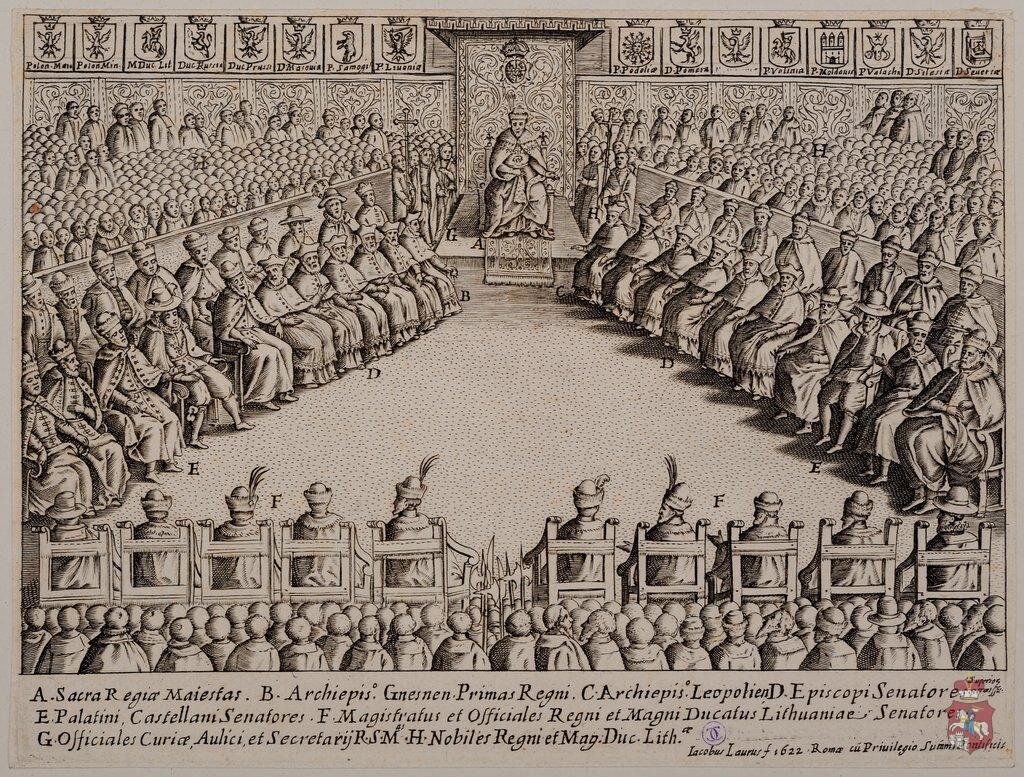 Polon. Maio
Polon Min.
M Duc Lit
Duc Russiæ
Duc Prussi
D. Masouiæ
P. Samogi
P. Livoniæ
P. Podoliæ
D. Pomera
P Volinia
P. Moldauiæ
P Valachiæ
D. Silesiæ
D. Seueriæ
H
H
H
G
A
B
C
D
D
E
E
F
F
A. Sacra Regiæ Maiestas. B. Archiepis.º Gnesnen Primas Regni. C. Archiepis.º Leopolien D. Episcopi Senatore
E. Palatini, Castellani Senatores. F. Magistratus et Officiales Regni et Magni Ducatus Lithuaniæ Senatore
G. Officiales Curiæ, Aulici, et Secretarij R.S.M. H. Nobiles Regni et Mag. Duc. Lith.æ
Iacobus Laurus f 1622. Romæ cũ Privilegio Summi Pontificis